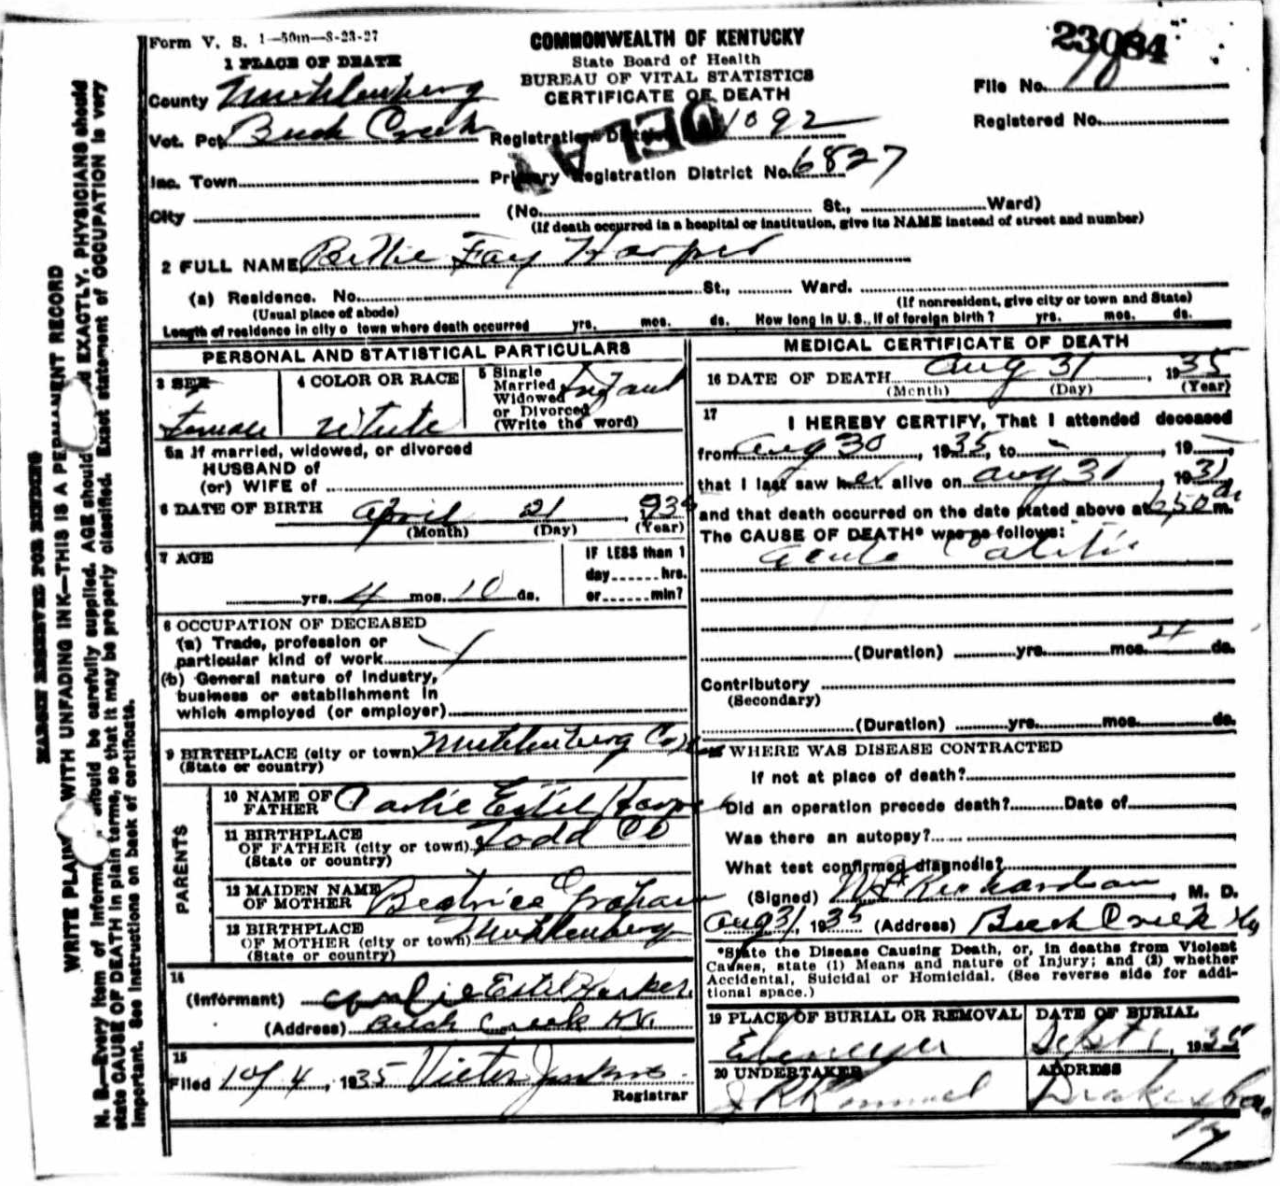 Form V. S. 1-50m-8-23-27
COMMONWEALTH OF KENTUCKY
State Board of Health
BUREAU OF VITAL STATISTICS
CERTIFICATE OF DEATH
23084
File No.
Registered No.
1 PLACE OF DEATH
County Muhlenberg
Vot. Pct. Beech Creek
Inc. Town
City
Registration District 1092
DELAY
Primary Registration District No. 6827
(No. St., Ward)
(If death occurred in a hospital or institution, give its NAME instead of street and number)
2 FULL NAME Bettie Fay Harper
(a) Residence. No. St., Ward.
(Usual place of abode)
(If nonresident, give city or town and State)
Length of residence in city o town where death occurred yrs. mos. ds. How long in U. S., if of foreign birth? yrs. mos. ds.
PERSONAL AND STATISTICAL PARTICULARS
3 SEX
Female
4 COLOR OR RACE
White
5 Single
Married
Widowed
or Divorced
(Write the word)
Infant
5a If married, widowed, or divorced
HUSBAND of
(or) WIFE of
6 DATE OF BIRTH April 21
(Month) (Day) (Year)
7 AGE
yrs. 4 mos. 10 ds.
IF LESS than 1
day hrs.
or min?
8 OCCUPATION OF DECEASED
(a) Trade, profession or
particular kind of work
(b) General nature of industry,
business or establishment in
which employed (or employer)
9 BIRTHPLACE (city or town) Muhlenberg Co
(State or country)
PARENTS
10 NAME OF
FATHER Carlie Estel Harper
11 BIRTHPLACE
OF FATHER (city or town) Todd Co
(State or country)
12 MAIDEN NAME
OF MOTHER Beatrice Graham
13 BIRTHPLACE
OF MOTHER (city or town) Muhlenberg
(State or country)
14
(Informant) Carlie Estel Harper
(Address) Beech Creek Ky.
15
Filed 10/4, 1935 Victor Jenkins
Registrar
MEDICAL CERTIFICATE OF DEATH
16 DATE OF DEATH Aug 31 1935
(Month) (Day) (Year)
17
I HEREBY CERTIFY, That I attended deceased
from Aug 30, 1935, to , 19
that I last saw her alive on Aug 31, 19
and that death occurred on the date stated above at m.
The CAUSE OF DEATH* was as follows:
Acute Colitis
(Duration) yrs. mos. ds.
Contributory
(Secondary)
(Duration) yrs. mos. ds.
18 WHERE WAS DISEASE CONTRACTED
If not at place of death?
Did an operation precede death? Date of
Was there an autopsy?
What test confirmed diagnosis?
(Signed) Richardson, M. D.
Aug 31, 1935 (Address) Beech Creek Ky
*State the Disease Causing Death, or, in deaths from Violent
Causes, state (1) Means and nature of Injury; and (2) whether
Accidental, Suicidal or Homicidal. (See reverse side for addi-
tional space.)
19 PLACE OF BURIAL OR REMOVAL
Ebenezer
DATE OF BURIAL
Sept 1, 1935
20 UNDERTAKER
ADDRESS
Drakesboro
Ky
MARGIN RESERVED FOR BINDING
WRITE PLAINLY WITH UNFADING INK—THIS IS A PERMANENT RECORD
N. B.—Every item of information should be carefully supplied. AGE should EXACTLY. PHYSICIANS should
state CAUSE OF DEATH in plain terms, so that it may be properly classified. Exact statement of OCCUPATION is very
important. See instructions on back of certificate.